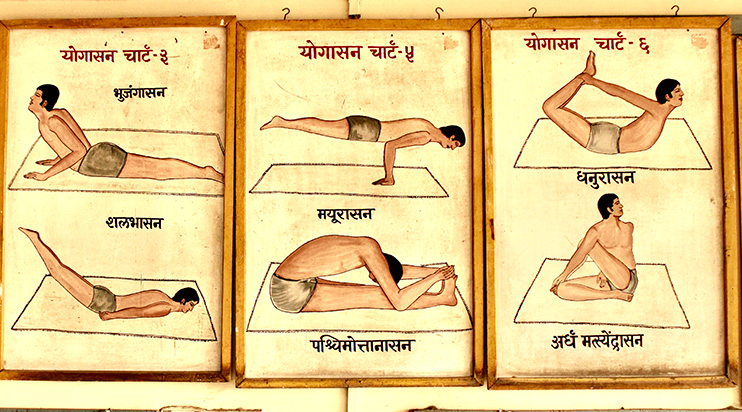 योगासन चार्ट-३
भुजंगासन
शलभासन
योगासन चार्ट-५
मयूरासन
पश्चिमोत्तानासन
योगासन चार्ट-६
धनुरासन
अर्ध मत्स्येंद्रासन